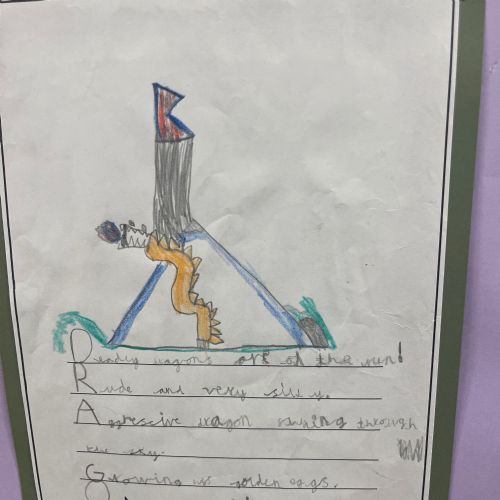 Deadly dragons are on the run!
Rude and very silly.
Aggrescive dragon running through
the sky.
Growing us golden eggs.